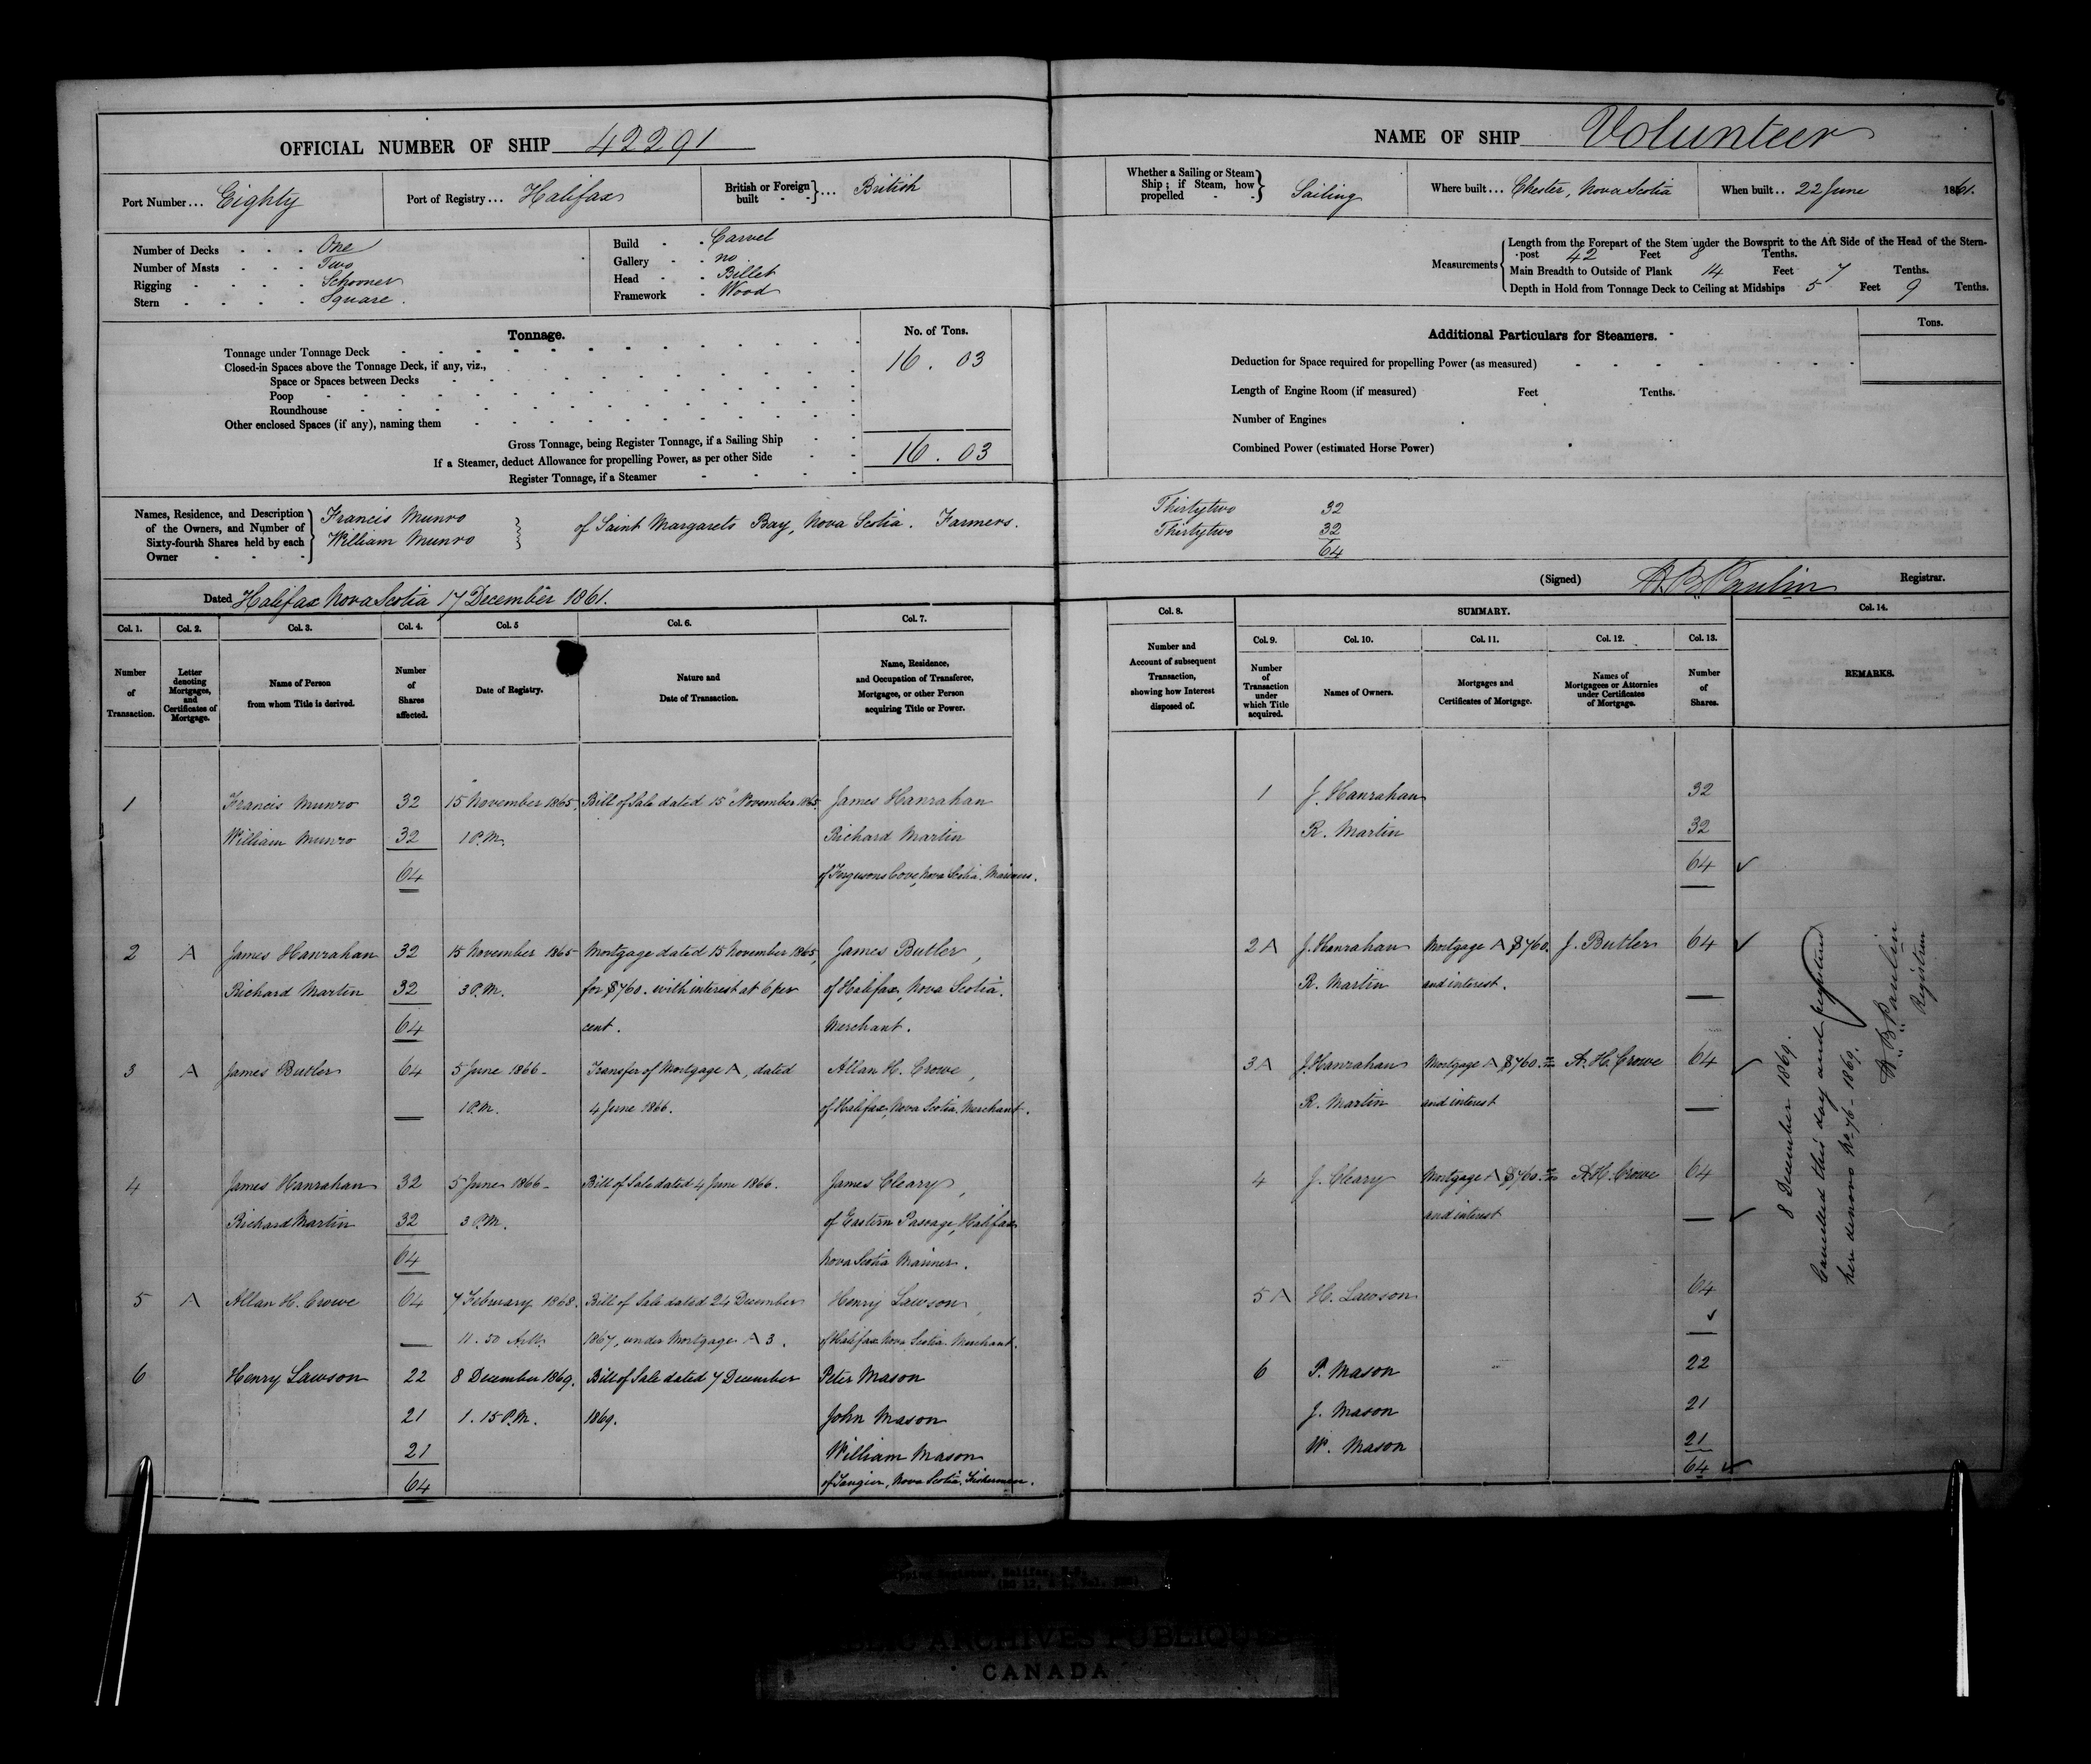 OFFICIAL NUMBER OF SHIP 42291
Port Number... Eighty
Port of Registry... Halifax
British or Foreign built - - }... British
Number of Decks - - - One
Number of Masts - - - Two
Rigging - - - - Schooner
Stern - - - - Square.
Build - - Carvel
Gallery - - no.
Head - - Billet
Framework - Wood
Tonnage.
No. of Tons.
Tonnage under Tonnage Deck
16 . 03
Closed-in Spaces above the Tonnage Deck, if any, viz.,
Space or Spaces between Decks
Poop
Roundhouse
Other enclosed Spaces (if any), naming them
Gross Tonnage, being Register Tonnage, if a Sailing Ship
16 . 03
If a Steamer, deduct Allowance for propelling Power, as per other Side
Register Tonnage, if a Steamer
Names, Residence, and Description of the Owners, and Number of Sixty-fourth Shares held by each Owner
Francis Munro
William Munro
of Saint Margarets Bay, Nova Scotia. Farmers.
Dated Halifax Nova Scotia 17 December 1861.
NAME OF SHIP Volunteer
Whether a Sailing or Steam Ship; if Steam, how propelled - - } Sailing
Where built... Chester, Nova Scotia
When built.. 22 June 1861.
Measurements
Length from the Forepart of the Stem under the Bowsprit to the Aft Side of the Head of the Stern-
post 42 Feet 8 Tenths.
Main Breadth to Outside of Plank 14 Feet 7 Tenths.
Depth in Hold from Tonnage Deck to Ceiling at Midships 5 Feet 9 Tenths.
Additional Particulars for Steamers.
Tons.
Deduction for Space required for propelling Power (as measured)
Length of Engine Room (if measured) Feet Tenths.
Number of Engines
Combined Power (estimated Horse Power)
Thirtytwo 32
Thirtytwo 32
64
(Signed) A.B. Paulin Registrar.
Col. 1. Col. 2. Col. 3. Col. 4. Col. 5 Col. 6. Col. 7.
Number of Transaction.
Letter denoting Mortgages, and Certificates of Mortgage.
Name of Person from whom Title is derived.
Number of Shares affected.
Date of Registry.
Nature and Date of Transaction.
Name, Residence, and Occupation of Transferee, Mortgagee, or other Person acquiring Title or Power.
1 Francis Munro 32 15 November 1865. Bill of Sale dated 15 November 1865. James Hanrahan
William Munro 32 1 P.M. Richard Martin
64 of Fergusons Cove, Nova Scotia. Mariners.
2 A James Hanrahan 32 15 November 1865 Mortgage dated 15 November 1865, James Butler,
Richard Martin 32 3 P.M. for $760. with interest at 6 per of Halifax, Nova Scotia.
64 cent. Merchant.
3 A James Butler 64 5 June 1866 - Transfer of Mortgage A, dated Allan H. Crowe,
1 P.M. 4 June 1866. of Halifax, Nova Scotia. Merchant.
4 James Hanrahan 32 5 June 1866 - Bill of Sale dated 4 June 1866. James Cleary,
Richard Martin 32 3 P.M. of Eastern Passage, Halifax
64 Nova Scotia Mariner.
5 A Allan H. Crowe 64 7 February 1868. Bill of Sale dated 24 December Henry Lawson,
11.50 A.M. 1867, under Mortgage A 3. of Halifax Nova Scotia. Merchant.
6 Henry Lawson 22 8 December 1869. Bill of Sale dated 7 December Peter Mason
21 1.15 P.M. 1869. John Mason
21 William Mason
64 of Tangier, Nova Scotia. Fishermen.
Col. 8. SUMMARY. Col. 14.
Col. 9. Col. 10. Col. 11. Col. 12. Col. 13.
Number and Account of subsequent Transaction, showing how Interest disposed of.
Number of Transaction under which Title acquired.
Names of Owners.
Mortgages and Certificates of Mortgage.
Names of Mortgagees or Attornies under Certificates of Mortgage.
Number of Shares.
REMARKS.
1 J. Hanrahan 32
R. Martin 32
64
2 A J. Hanrahan Mortgage A $760. J. Butler 64
R. Martin and interest.
3 A J. Hanrahan Mortgage A $760. A. H. Crowe 64
R. Martin and interest
4 J. Cleary Mortgage A $760. A. H. Crowe 64
and interest
5 A H. Lawson 64
6 P. Mason 22
J. Mason 21
W. Mason 21
64
8 December 1869.
Cancelled this day and registered
here denovo No 76 - 1869.
A.B. Paulin
Registrar
Halifax, N.S.
ARCHIVES PUBLIQUES
CANADA